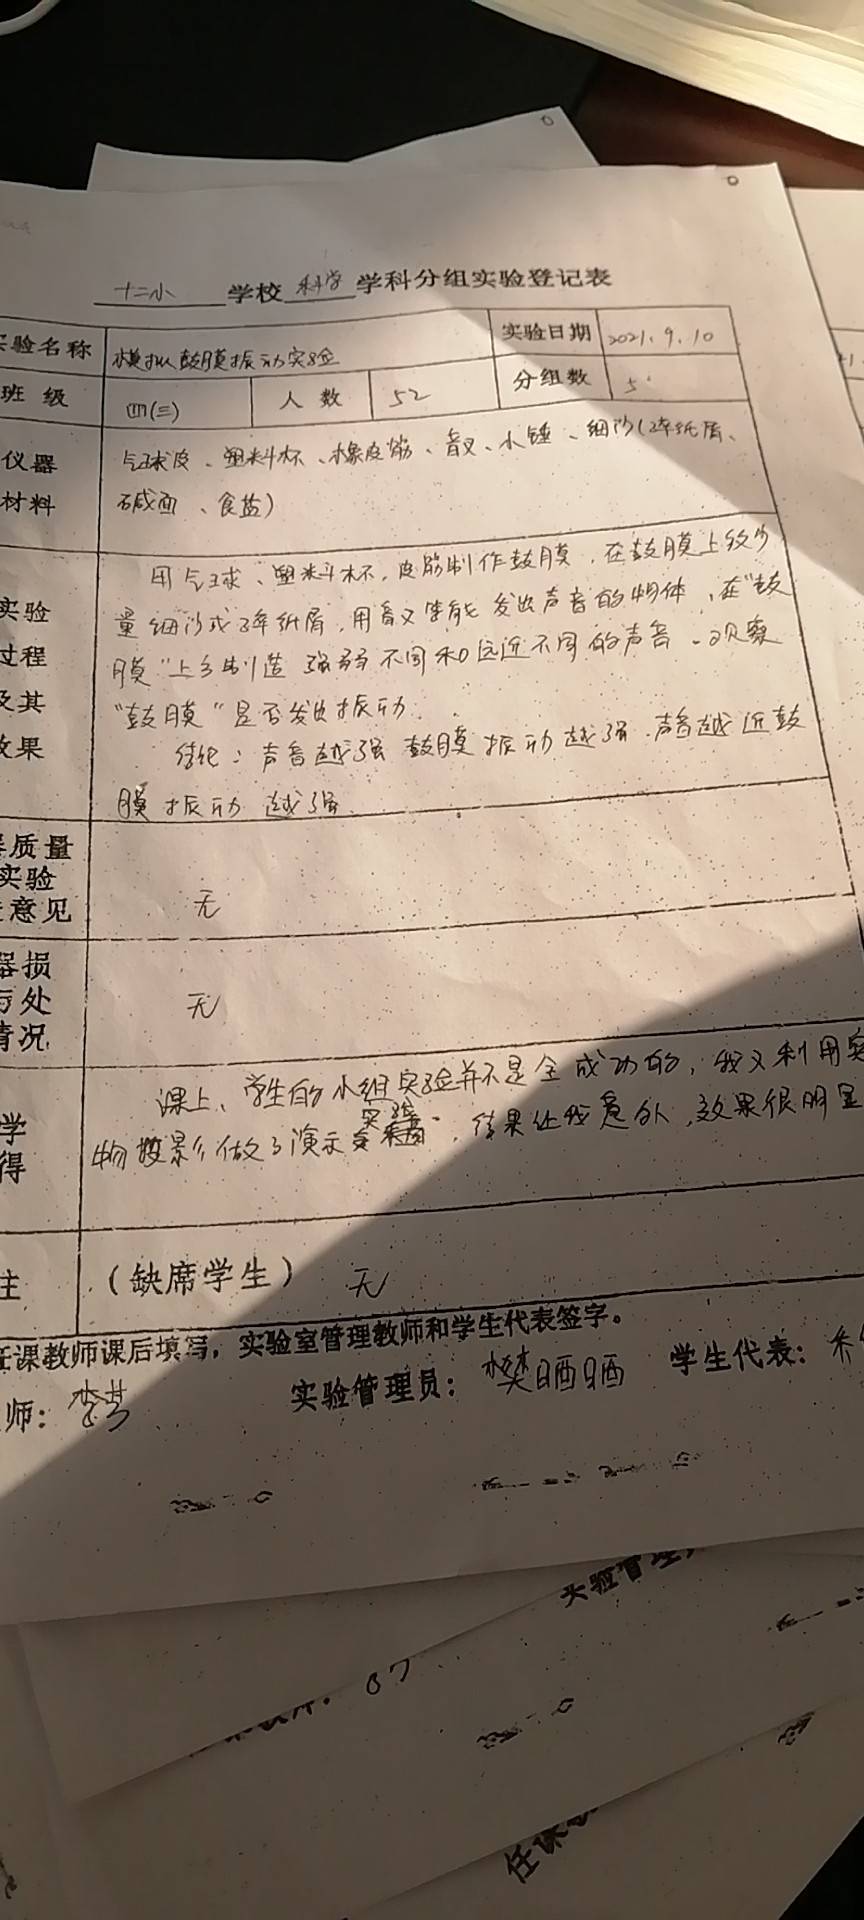 十二小 学校 科学 学科分组实验登记表
实验名称 模拟鼓膜振动实验 实验日期 2021.9.10
班 级 四(三) 人 数 52 分组数 5
仪器 气球皮、塑料杯、橡皮筋、音叉、小锤、细沙(碎纸屑、
材料 碱面、食盐)
用气球、塑料杯,皮筋制作鼓膜,在鼓膜上放少
实验 量细沙或碎纸屑,用音叉等能发出声音的物体,在"鼓
过程 膜"上方制造强弱不同和远近不同的声音。观察
及其 "鼓膜"是否发出振动.
效果 结论:声音越强鼓膜振动越强.声音越近鼓
膜振动越强.
质量
实验
意见 无
器损
与处 无
情况
课上、学生的小组实验并不是全成功的,我又利用实
学 物投影做了演示实验,结果让我意外,效果很明显
得
注 (缺席学生) 无
任课教师课后填写,实验室管理教师和学生代表签字。
师: 实验管理员: 樊晒晒 学生代表:
实验管理
任课